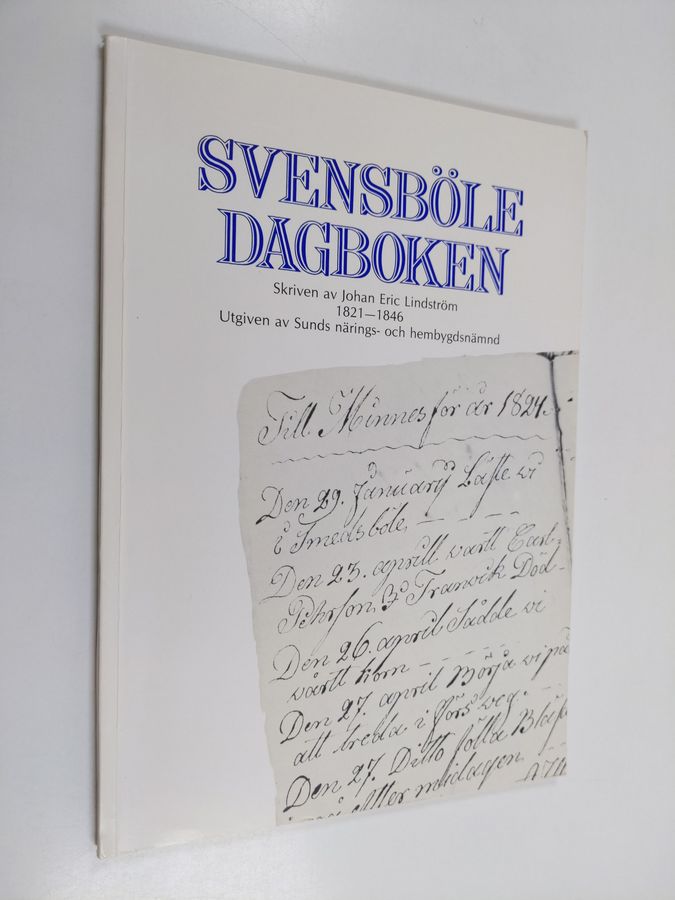 SVENSBÖLE
DAGBOKEN
Skriven av Johan Eric Lindström
1821—1846
Utgiven av Sunds närings- och hembygdsnämnd
Till Minnes för år 1824.
Den 29. January Läste vi
i Smedsböle
Den 23. aprill wartt Carl
Pehrson i Tranvik Död
Den 26. april Sådde vi
vårtt korn
Den 27. april Börja vi på
att breda i
Den 27. Ditto fölla
Efter middagen